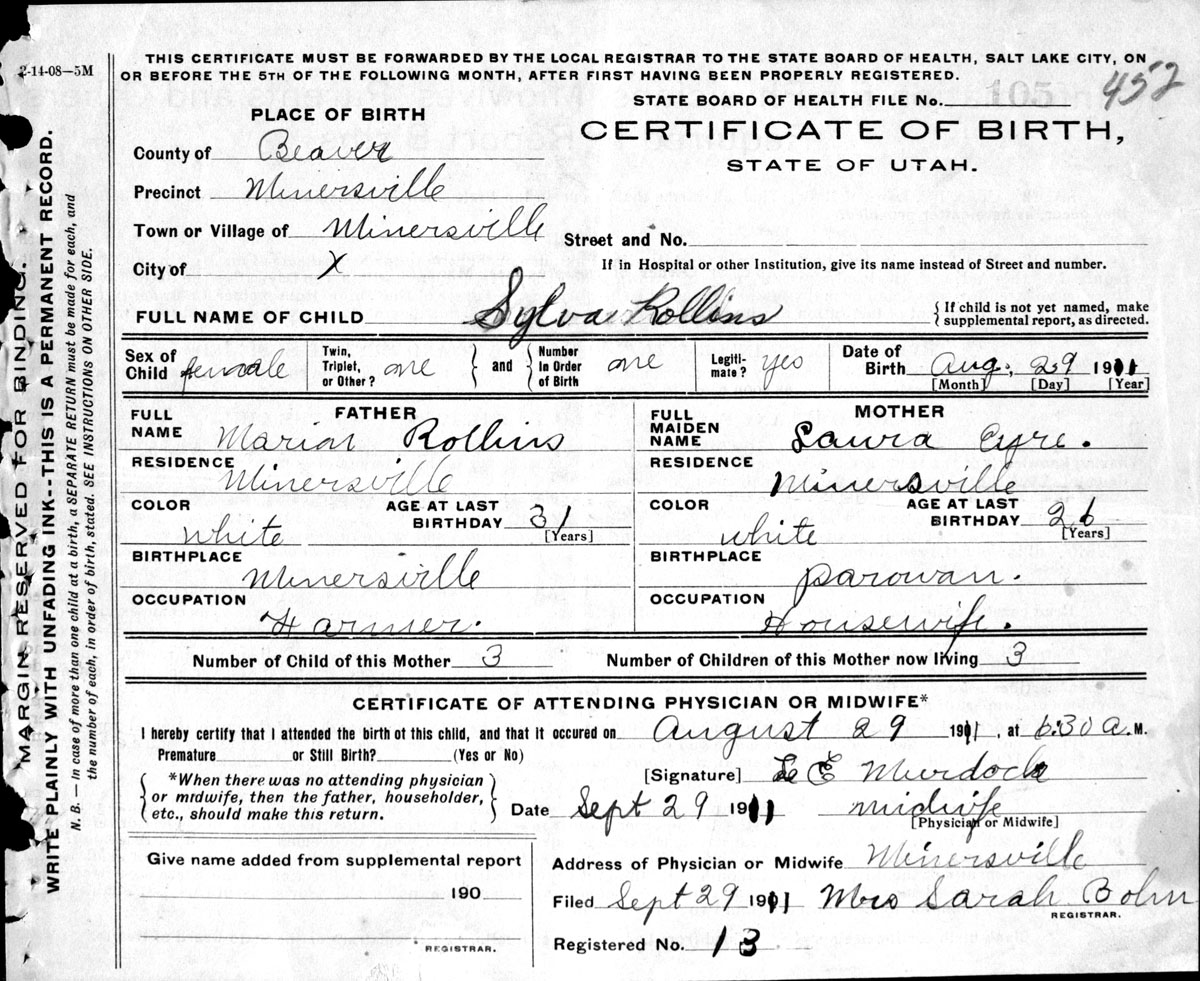 2-14-08—5M
THIS CERTIFICATE MUST BE FORWARDED BY THE LOCAL REGISTRAR TO THE STATE BOARD OF HEALTH, SALT LAKE CITY, ON
OR BEFORE THE 5TH OF THE FOLLOWING MONTH, AFTER FIRST HAVING BEEN PROPERLY REGISTERED.
STATE BOARD OF HEALTH FILE No. 105 452
PLACE OF BIRTH
CERTIFICATE OF BIRTH,
STATE OF UTAH.
County of Beaver
Precinct Minersville
Town or Village of Minersville
Street and No.
City of X
If in Hospital or other Institution, give its name instead of Street and number.
FULL NAME OF CHILD Sylva Rollins
{ If child is not yet named, make
supplemental report, as directed.
Sex of Child female
Twin, Triplet, or Other? one } and { Number In Order of Birth one
Legiti-mate? yes
Date of Birth Aug. 29 1911
[Month] [Day] [Year]
FATHER
MOTHER
FULL NAME Marion Rollins
FULL MAIDEN NAME Laura Eyre.
RESIDENCE Minersville
RESIDENCE Minersville
COLOR white AGE AT LAST BIRTHDAY 31 [Years]
COLOR white AGE AT LAST BIRTHDAY 26 [Years]
BIRTHPLACE Minersville
BIRTHPLACE parowan.
OCCUPATION Farmer.
OCCUPATION Housewife.
Number of Child of this Mother 3 Number of Children of this Mother now living 3
CERTIFICATE OF ATTENDING PHYSICIAN OR MIDWIFE*
I hereby certify that I attended the birth of this child, and that it occured on August 29 1911, at 6:30 a.M.
Premature or Still Birth? (Yes or No)
{ *When there was no attending physician
or midwife, then the father, householder,
etc., should make this return. }
[Signature] E Murdock
Date Sept 29 1911 midwife
[Physician or Midwife]
Give name added from supplemental report
190
REGISTRAR.
Address of Physician or Midwife Minersville
Filed Sept 29 1911 Mrs Sarah Bohn
REGISTRAR.
Registered No. 13
MARGIN RESERVED FOR BINDING.
WRITE PLAINLY WITH UNFADING INK--THIS IS A PERMANENT RECORD.
N. B. — In case of more than one child at a birth, a SEPARATE RETURN must be made for each, and
the number of each, in order of birth, stated. SEE INSTRUCTIONS ON OTHER SIDE.